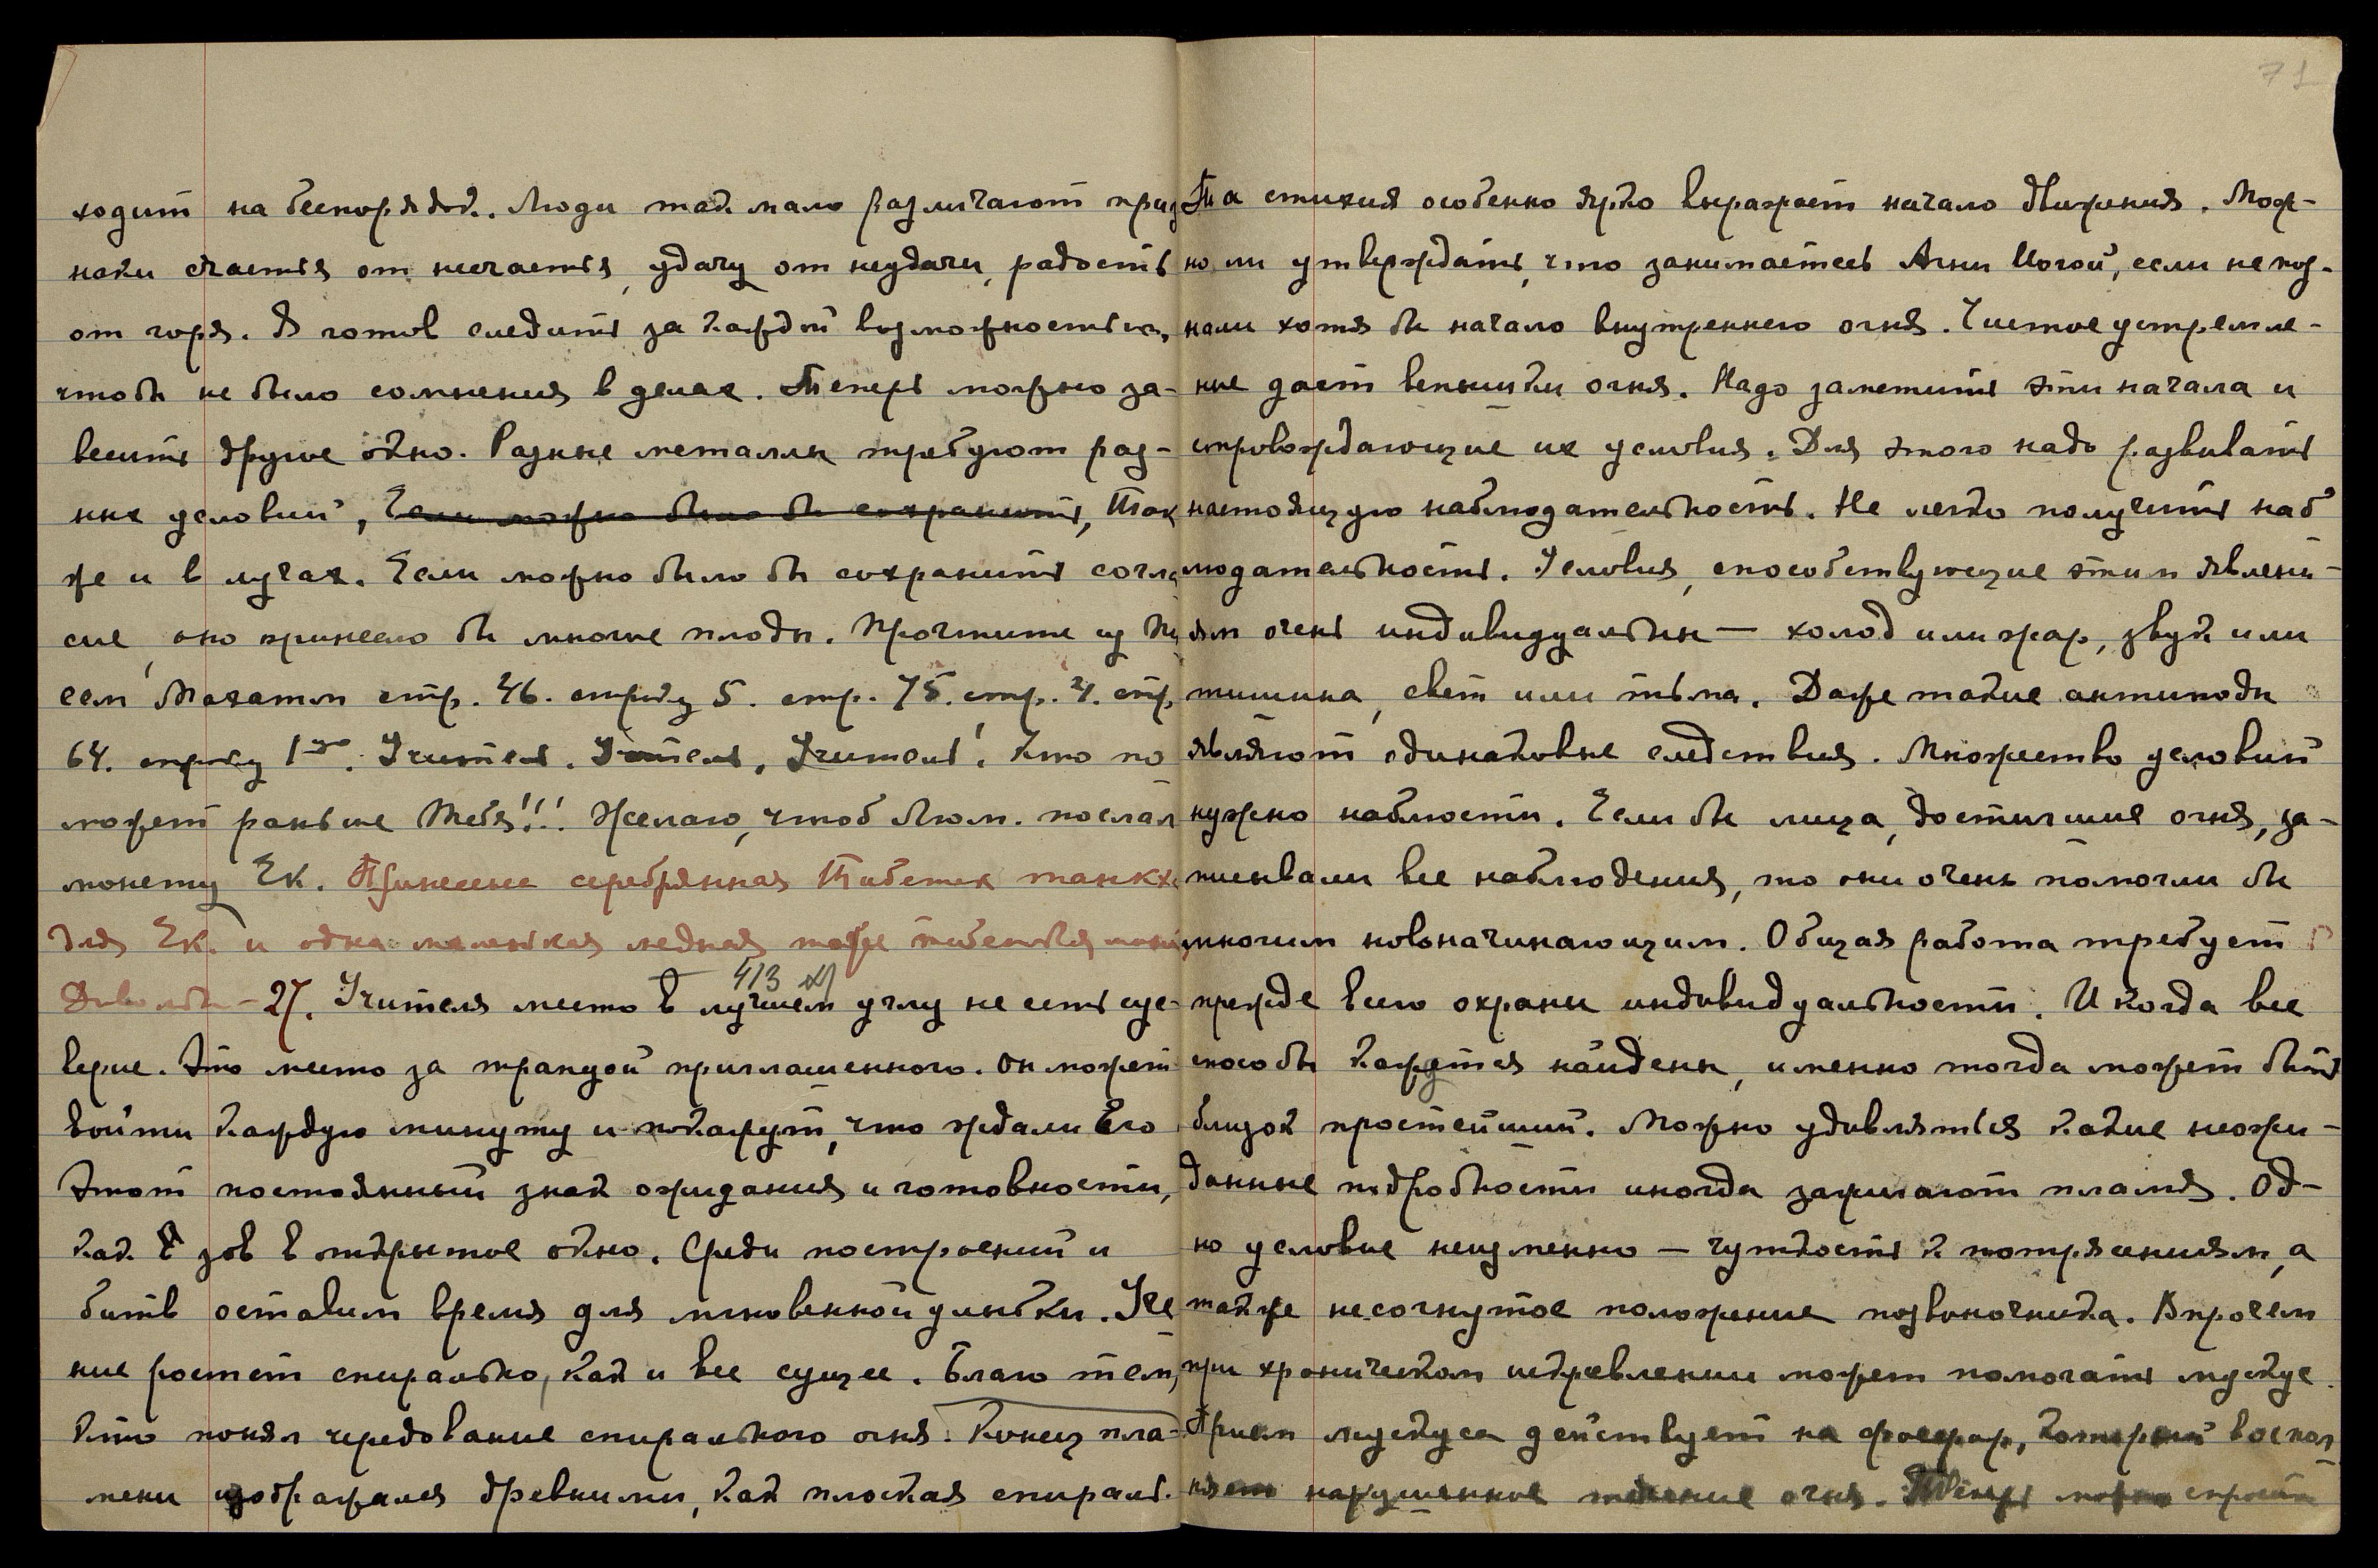 ходит на беспорядок. Люди так мало различают приз
наки счастья от несчастья, удачу от неудачи, радость
от горя. Я готов следить за каждой возможностью,
чтобы не было сомнения в делах. Теперь можно за-
весить другое окно. Разные металлы требуют раз-
ных условий, Если можно было бы сохранить, Так
же и в лучах. Если можно было бы сохранить согла
сие, оно принесло бы многие плоды. Прочтите из Пи
сем Махатм стр. 46. строку 5. стр. 75. стр. 4. стр.
64. строку 1ую. Учитель. Учитель, Учитель! Кто по
может раньше Тебя!!! Желаю, чтоб Люм. послал
монету Ек. Принесена серебрянная Тибетск танкха
для Ек. и одна маленькая медная тоже тибетская
Довольно - 27. Учителя место в лучшем углу не есть суе-
413
верие. Это место за трапезой приглашенного. Он может
войти каждую минуту и покажут, что ждали Его
Этот постоянный знак ожидания и готовности,
как зов в открытое окно. Среди построений и
битв оставим время для мгновенной улыбки. Уче
ние ростет спирально, как и все сущее. Благо тем,
кто понял чередование спирального огня. Конец пла-
мени изображался древними, как плоская спираль.
71
Та стихия особенно ярко выражает начало движения. Мож-
но ли утверждать, что занимаетесь Агни Йогой, если не поз-
нали хотя бы начало внутреннего огня. Чистое устремле-
ние дает вспышки огня. Надо заметить эти начала и
спровождающие их условия. Для этого надо развивать
настоящую наблюдательность. Не легко получить наб
людательность. Условия, способствующие этим явлени-
ям очень индивидуальны — холод или жар, звук или
тишина, свет или тьма. Даже такие антиподы
являют одинаковые следствия. Множество условий
нужно наблюсти. Если бы лица, достигшие огня, за-
писывали все наблюдения, то они очень помогли бы
многим новоначинающим. Общая работа требует
прежде всего охраны индивидуальности. И когда все
способы кажутся найдены, именно тогда может быть
близок простейший. Можно удивляться какие неожи-
данные подробности иногда зажигают пламя. Од-
но условие неизменно — чуткость к потрясениям, а
также несогнутое положение позвоночника. Впрочем
при хроническом искревлении может помогать мускус.
Прием мускуса действует на фосфор, который воспол
няет нарушенное течение огня. Теперь можно спросить